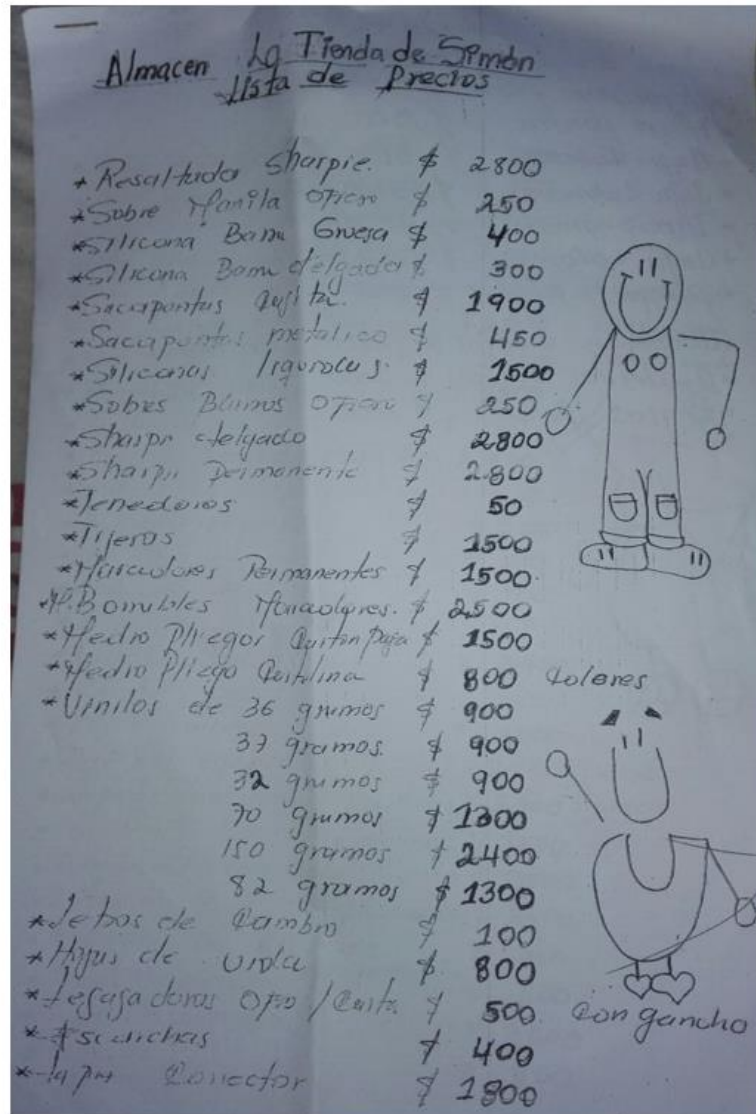 Almacen La Tienda de Simón
Lista de Precios
*Resaltador Sharpie. $ 2800
*Sobre Manila Oficio $ 250
*Silicona Barra Gruesa $ 400
*Silicona Barra delgada $ 300
*Sacapuntas $ 1900
*Sacapuntas metalico $ 450
*Siliconas liquidas $ 1500
*Sobres Blancos Oficio $ 250
*Sharpi delgado $ 2800
*Sharpi Permanente $ 2.800
*Tenedores $ 50
*Tijeras $ 1500
*Marcadores Permanentes $ 1500
*M. Borrables Marcadores. $ 2500
*Medio Pliegos Carton Paja $ 1500
*Medio Pliego Cartulina $ 800 Colores
*Vinilos de 36 gramos $ 900
37 gramos. $ 900
32 gramos $ 900
70 gramos $ 1300
150 gramos $ 2400
82 gramos $ 1300
de $ 100
*Hojas de vida $ 800
*Legajadoras Ofio / Carta $ 500 Con gancho
*Escarchas $ 400
Corrector $ 1800